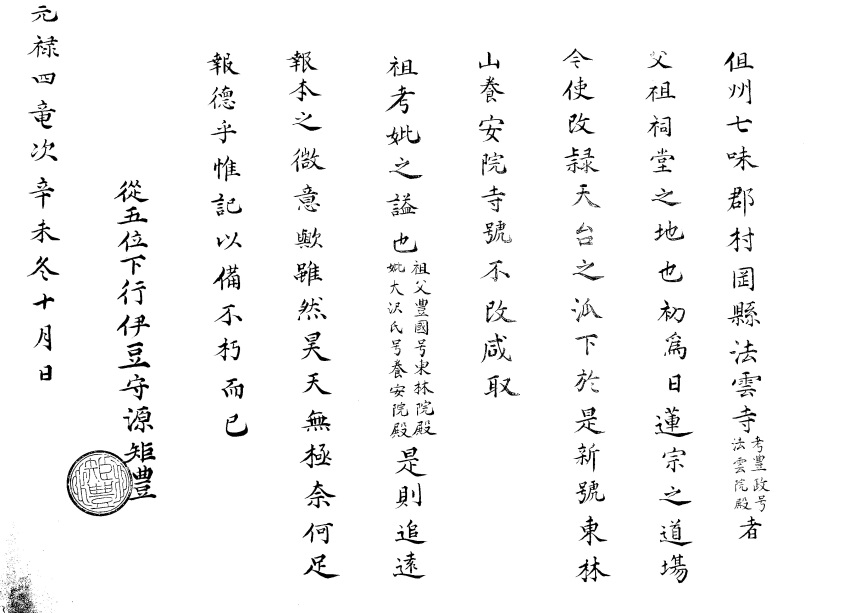 但州七味郡村岡縣法雲寺考豊政号法雲院殿者
父祖祠堂之地也初為日蓮宗之道場
今使改隷天台之泒下於是新號東林
山養安院寺號不改咸取
祖考妣之謚也祖父豊國号東林院殿妣大沢氏号養安院殿是則追遠
報本之微意歟雖然昊天無極奈何足
報德乎惟記以備不朽而已
從五位下行伊豆守源矩豊
元禄四竜次辛未冬十月日
矩豊